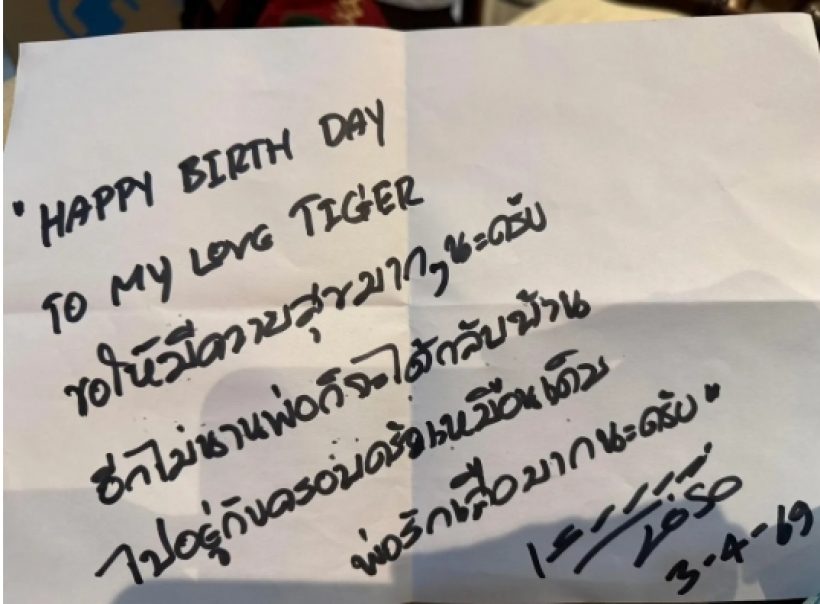 "HAPPY BIRTH DAY
TO MY LOVE TIGER
ขอให้มีความสุขมากๆนะครับ
อีกไม่นานพ่อก็จะได้กลับบ้าน
ไปอยู่กับครอบครัวเหมือนเดิม
พ่อรักเสือมากนะครับ"
LOSO
3-4-69